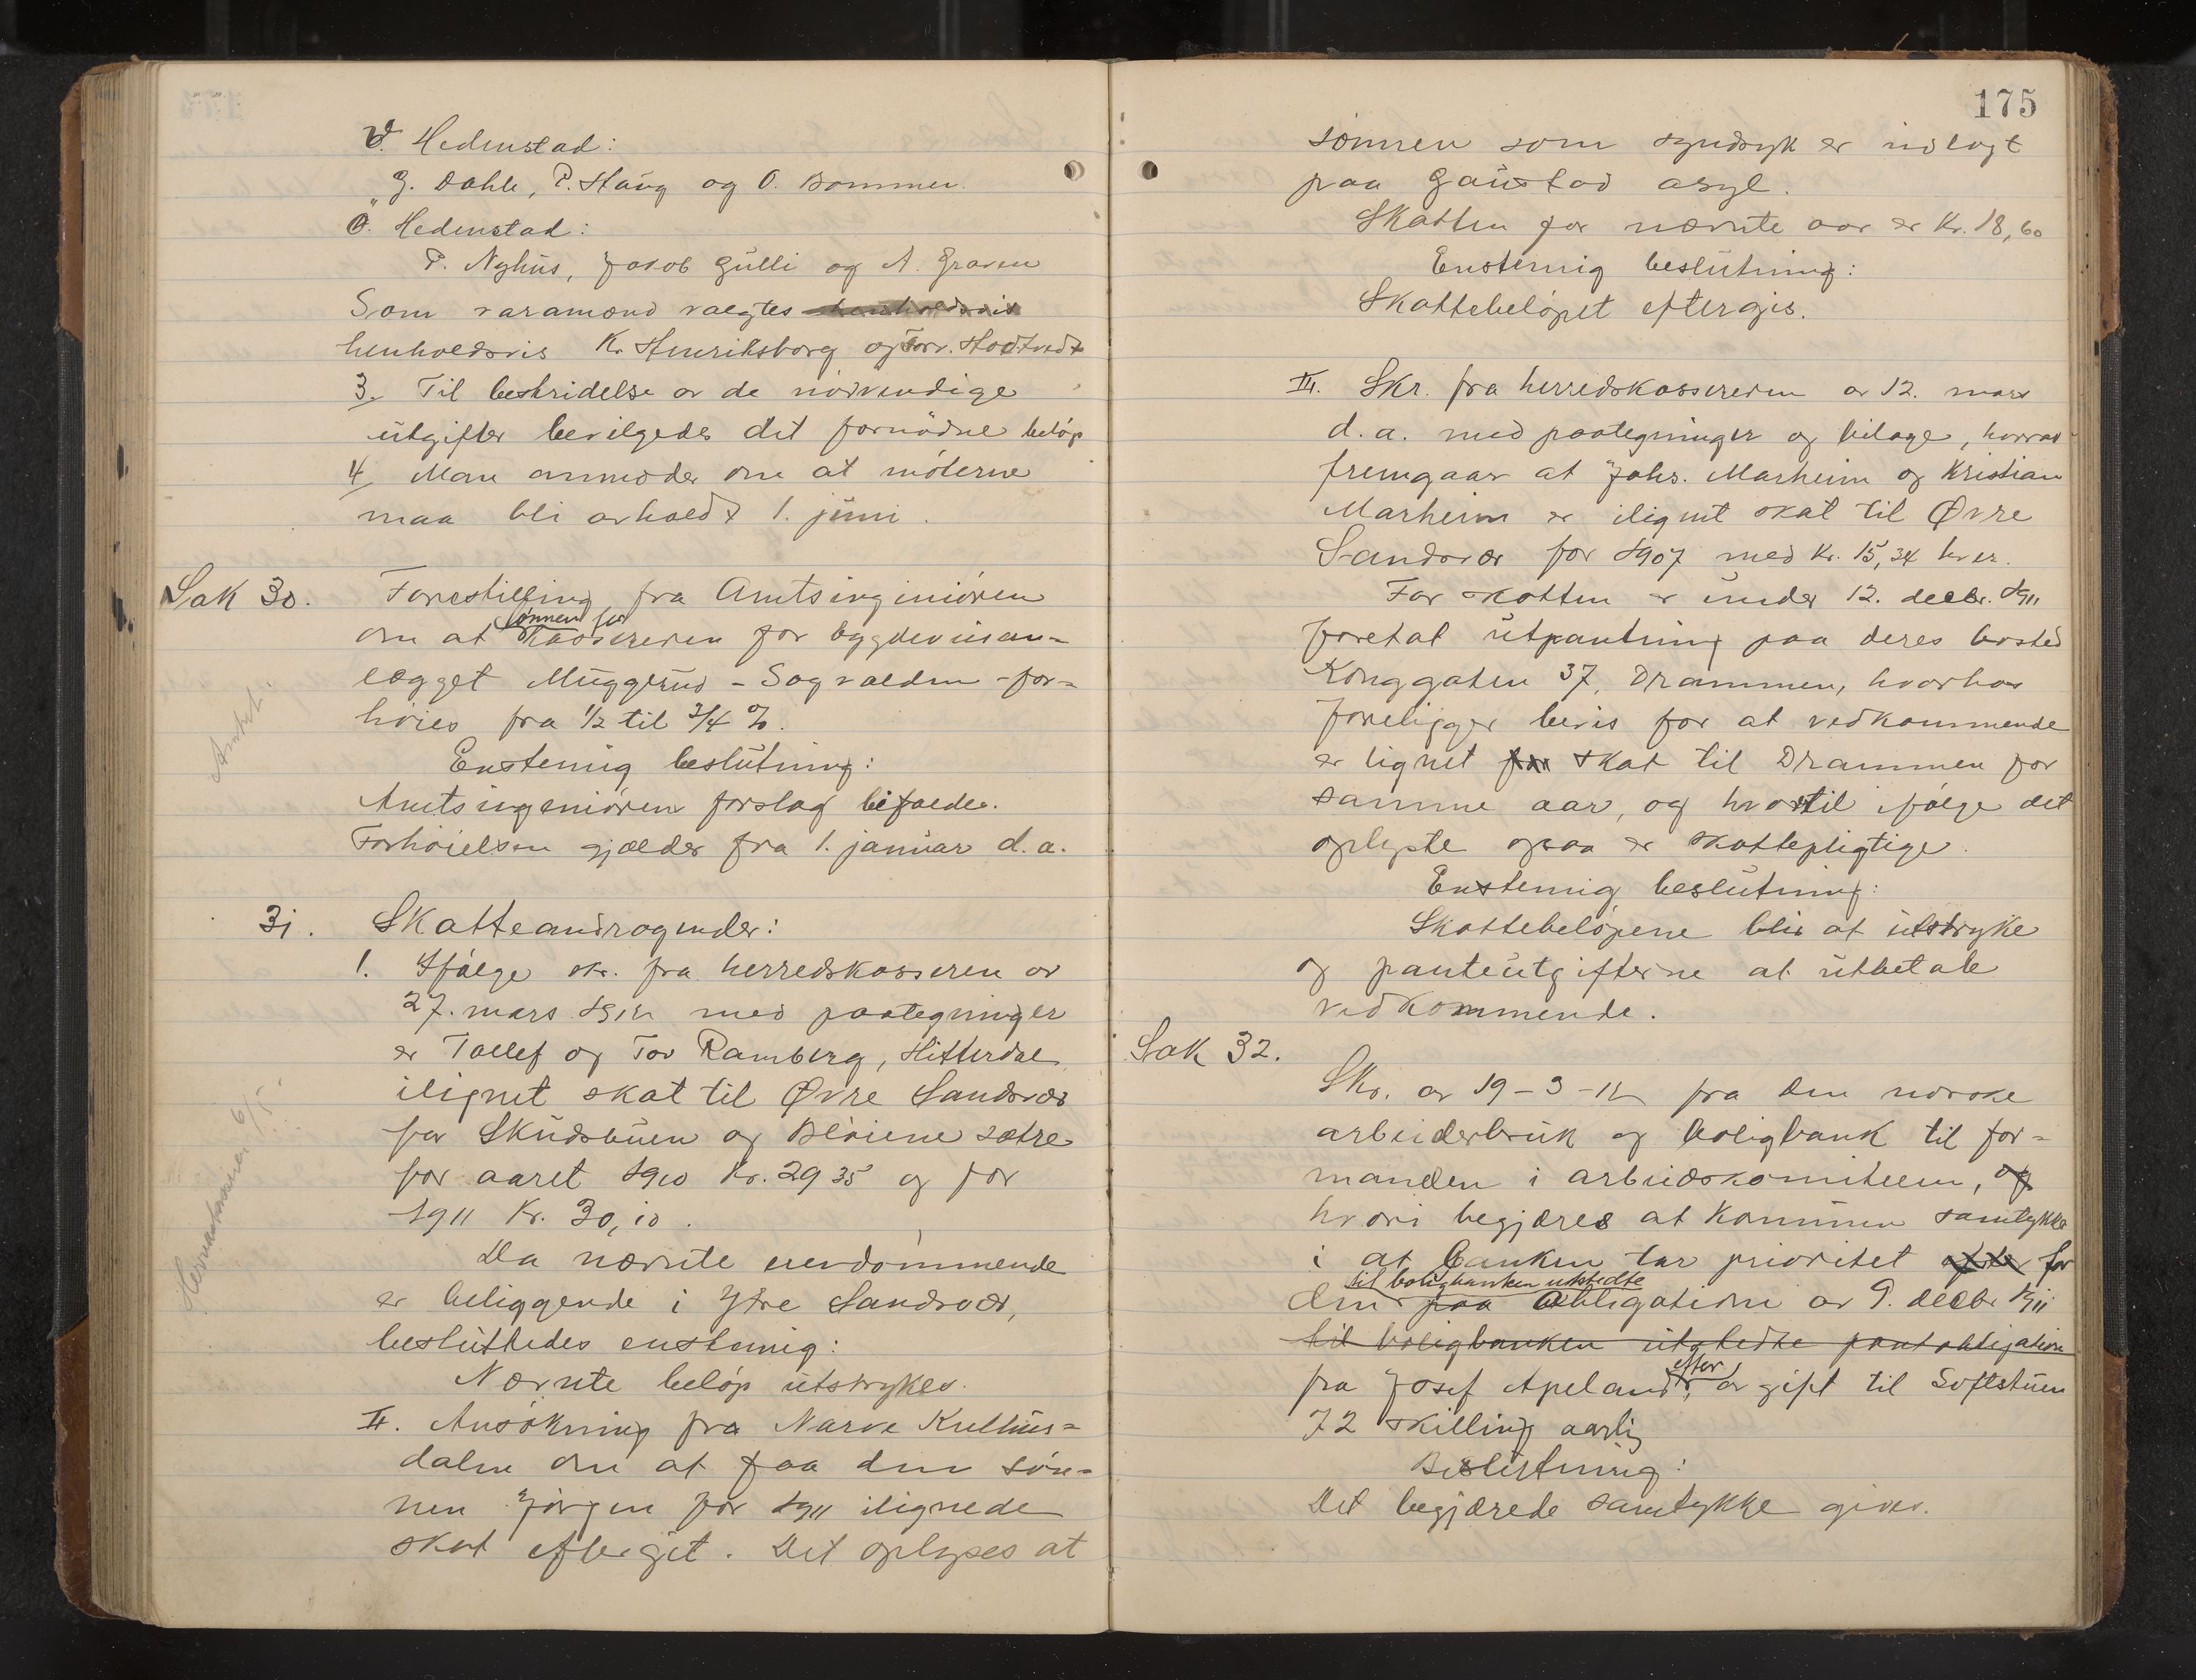 V. Hedenstad:
G. Dahle, P. Haug og O. Bommen.
Ø. Hedenstad:
P. Nyhus, Jakob Gulli og A. Graven
Som varamænd valgtes henholdsvis
henholdsvis K. Henriksborg og Torv. Stodtvedt
3. Til bestridelse av de nødvendige
utgifter bevilgedes det fornødne beløp
4. Man anmoder om at møterne
maa bli avholdt 1. juni.
Sak 30. Forestilling fra Amtsingeniøren
lønnen for
om at kassereren for bygdeveisan=
lægget Muggerud - Sagvolden - for=
høies fra 1/2 til 3/4 %.
Amtet
Enstemig beslutning:
Amtsingeniøren forslag bifaldes.
Forhøielsen gjælder fra 1. januar d.a.
31. Skatteandragender:
1. Ifølge skr. fra herredskasseren av
27. mars 1912 med paategninger
er Tollef og Tov Ramberg, Hitterdal
ilignet skat til Øvre Sandsvær
for Skudsbuen og Bløiene sætre
for aaret 1910 Kr. 29 35 og for
1911 Kr. 30,10.
Da nævnte eiendommende
er beliggende i Ytre Sandsvær,
besluttedes enstemig:
Nævnte beløp utstrykes.
Herredskasserer 6/5
II. Ansøkning fra Narve Kullus=
dalen om at faa den søn=
nen Jørgen for 1911 ilignede
skat eftergit. Det oplyses at
175
sønnen som syndsyk er indlagt
paa Gaustad asyl.
Skatten for nævnte aar er Kr. 18,60
Enstemig beslutning:
Skattebeløpet eftergis.
III. Skr. fra herredskassereren av 12. mars
d.a. med paategninger og bilage, hvorav
fremgaar at Johs. Marheim og Kristian
Marheim er ilignet skat til Øvre
Sandsvær for 1907 med Kr. 15,34 hver.
For skatten er under 12. decbr. 1911
foretat utpantning paa deres bosted
Konggaten 37, Drammen, hvorhos
foreligger bevis for at vedkommende
er lignet for skat til Drammen for
samme aar, og hvortil ifølge det
oplyste ogsaa er skattepligtige.
Enstemig beslutning:
Skattebeløpene blir at utstryke
og panteutgifterne at utbetale
vedkommende.
Sak 32.
Skr. av 19-3-12 fra den norske
arbeiderbruk og boligbank til for=
manden i arbeidskomiteen, og
hvori begjæres at kommunen samtykke
i at banken tar prioritet efter for
til boligbanken utstedte
den paa obligation av 9. decbr 1911
til boligbanken utstedte pantobligation
efter
fra Josef Apeland, avgift til Loftstuen
72 skilling aarlig
Beslutning:
Det begjærede samtykke gives.